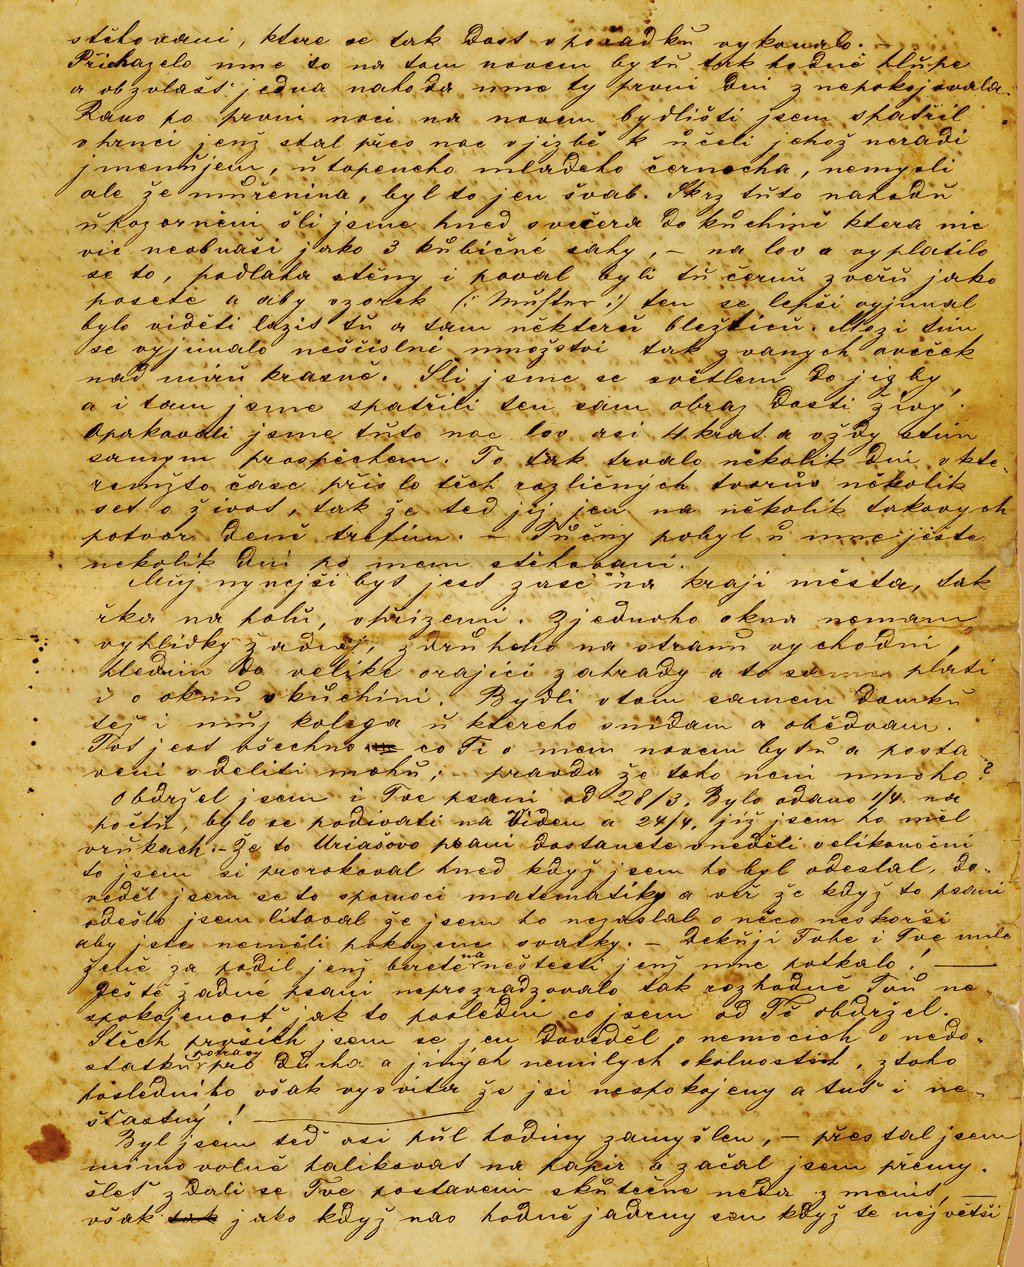 stěhovani, ktere se tak dost v pořadků vykonalo. —
Přichazelo mne to na tom novem bytů tak hodně hlůpe
a obzvlašť jedna nahoda mne ty prvni dni znepokojovala.
Rano po prvni noci na novem bydlišti jsem spatřil
v hrnci jenž stal přes noc v jizbě k účeli jehož neradi
jmenůjem, ůtopeneho mladeho černocha, nemysli
ale že můřenina, byl to jen švab. Skrz tůto nahodů
ůpozorněni šli jsme hned svečera do kůchině ktera nic
vic neobnaši jako 3 kůbičné sahy, — na lov a vyplatilo
se to, podlaha stěny i poval byli tů černů zvěřů jako
posete a aby vzorek (: Můster :) ten se lepši vyjimal
bylo viděti lazit tů a tam některů blešticů. Mezi tim
se vyjimalo nesčislni množstvi tak zvanych oveček
nad mirů krasne. Šli jsme se světlem do jizby,
a i tam jsme spatřili ten sam obraz dosti živy.
Opakovali jsme tůto noc lov asi 4 krat a vždy stim
samym prospěchem. To tak trvalo několik dni v kte-
remžto čase přislo těch rozličných tvorův několik
set o život, tak že teď jij jen na několik takovych
potvor deně trefim. — Tůčny pobyl ů mne ještě
nekolik dni po mem stěhovani.
Můj nynejši byt jest zase na kraji města, tak
řka na polů, v přizemi. Zjednoho okna nemam
vyhlidky žadnej, zdrůheho na stranů vychodni,
hledim do velike orajici zahrady a to same plati
i o oknů v kůchini. Bydli v tom samem domků
též i můj kolega ů ktereho snidam a obědvam.
Toť jest všechno co Ti o mem novem bytů a posta-
veni sděliti mohů; — pravda že toho neni mnoho?
Obdržel jsem i Tve psani od 28/3. Bylo odano 1/4. na
poštů, bylo se podivati na Viden a 24/4. již jsem ho měl
vrůkach. — Že to Uriašovo psani dostanete v neděli velikonočni
to jsem si prorokoval hned když jsem ho byl odeslal, do-
věděl jsem se to spomoci matematiky a věř že když to psani
odešlo jsem litoval že jsem ho nezaslal o něco neskorši
aby jste neměli pokažene svatky. — Děkůji Tobe i Tve mile
ženě za podil jenž berete na neštesti jenž mne potkalo! —
Ještě žadné psani neprozradzovalo tak rozhodně Tvů ne-
spokojenosť jak to posledni co jsem od Tě obdržel.
Stěch prvšich jsem se jen dověděl o nemocich o nedo-
statků potravy pro důcha a jiných nemilych okolnostech, ztoho
posledniho však vysvita že jsi nespokojeny a tuš i ne-
šťastný! —
Byl jsem teď asi půl hodiny zamyšlen, — přestal jsem
mimovolně halikovat na papir a začal jsem přemy-
šleť zdali se Tve postaveni skůtečne neda zmenit, —
však jako když nao hodně jadrny sen když te největši